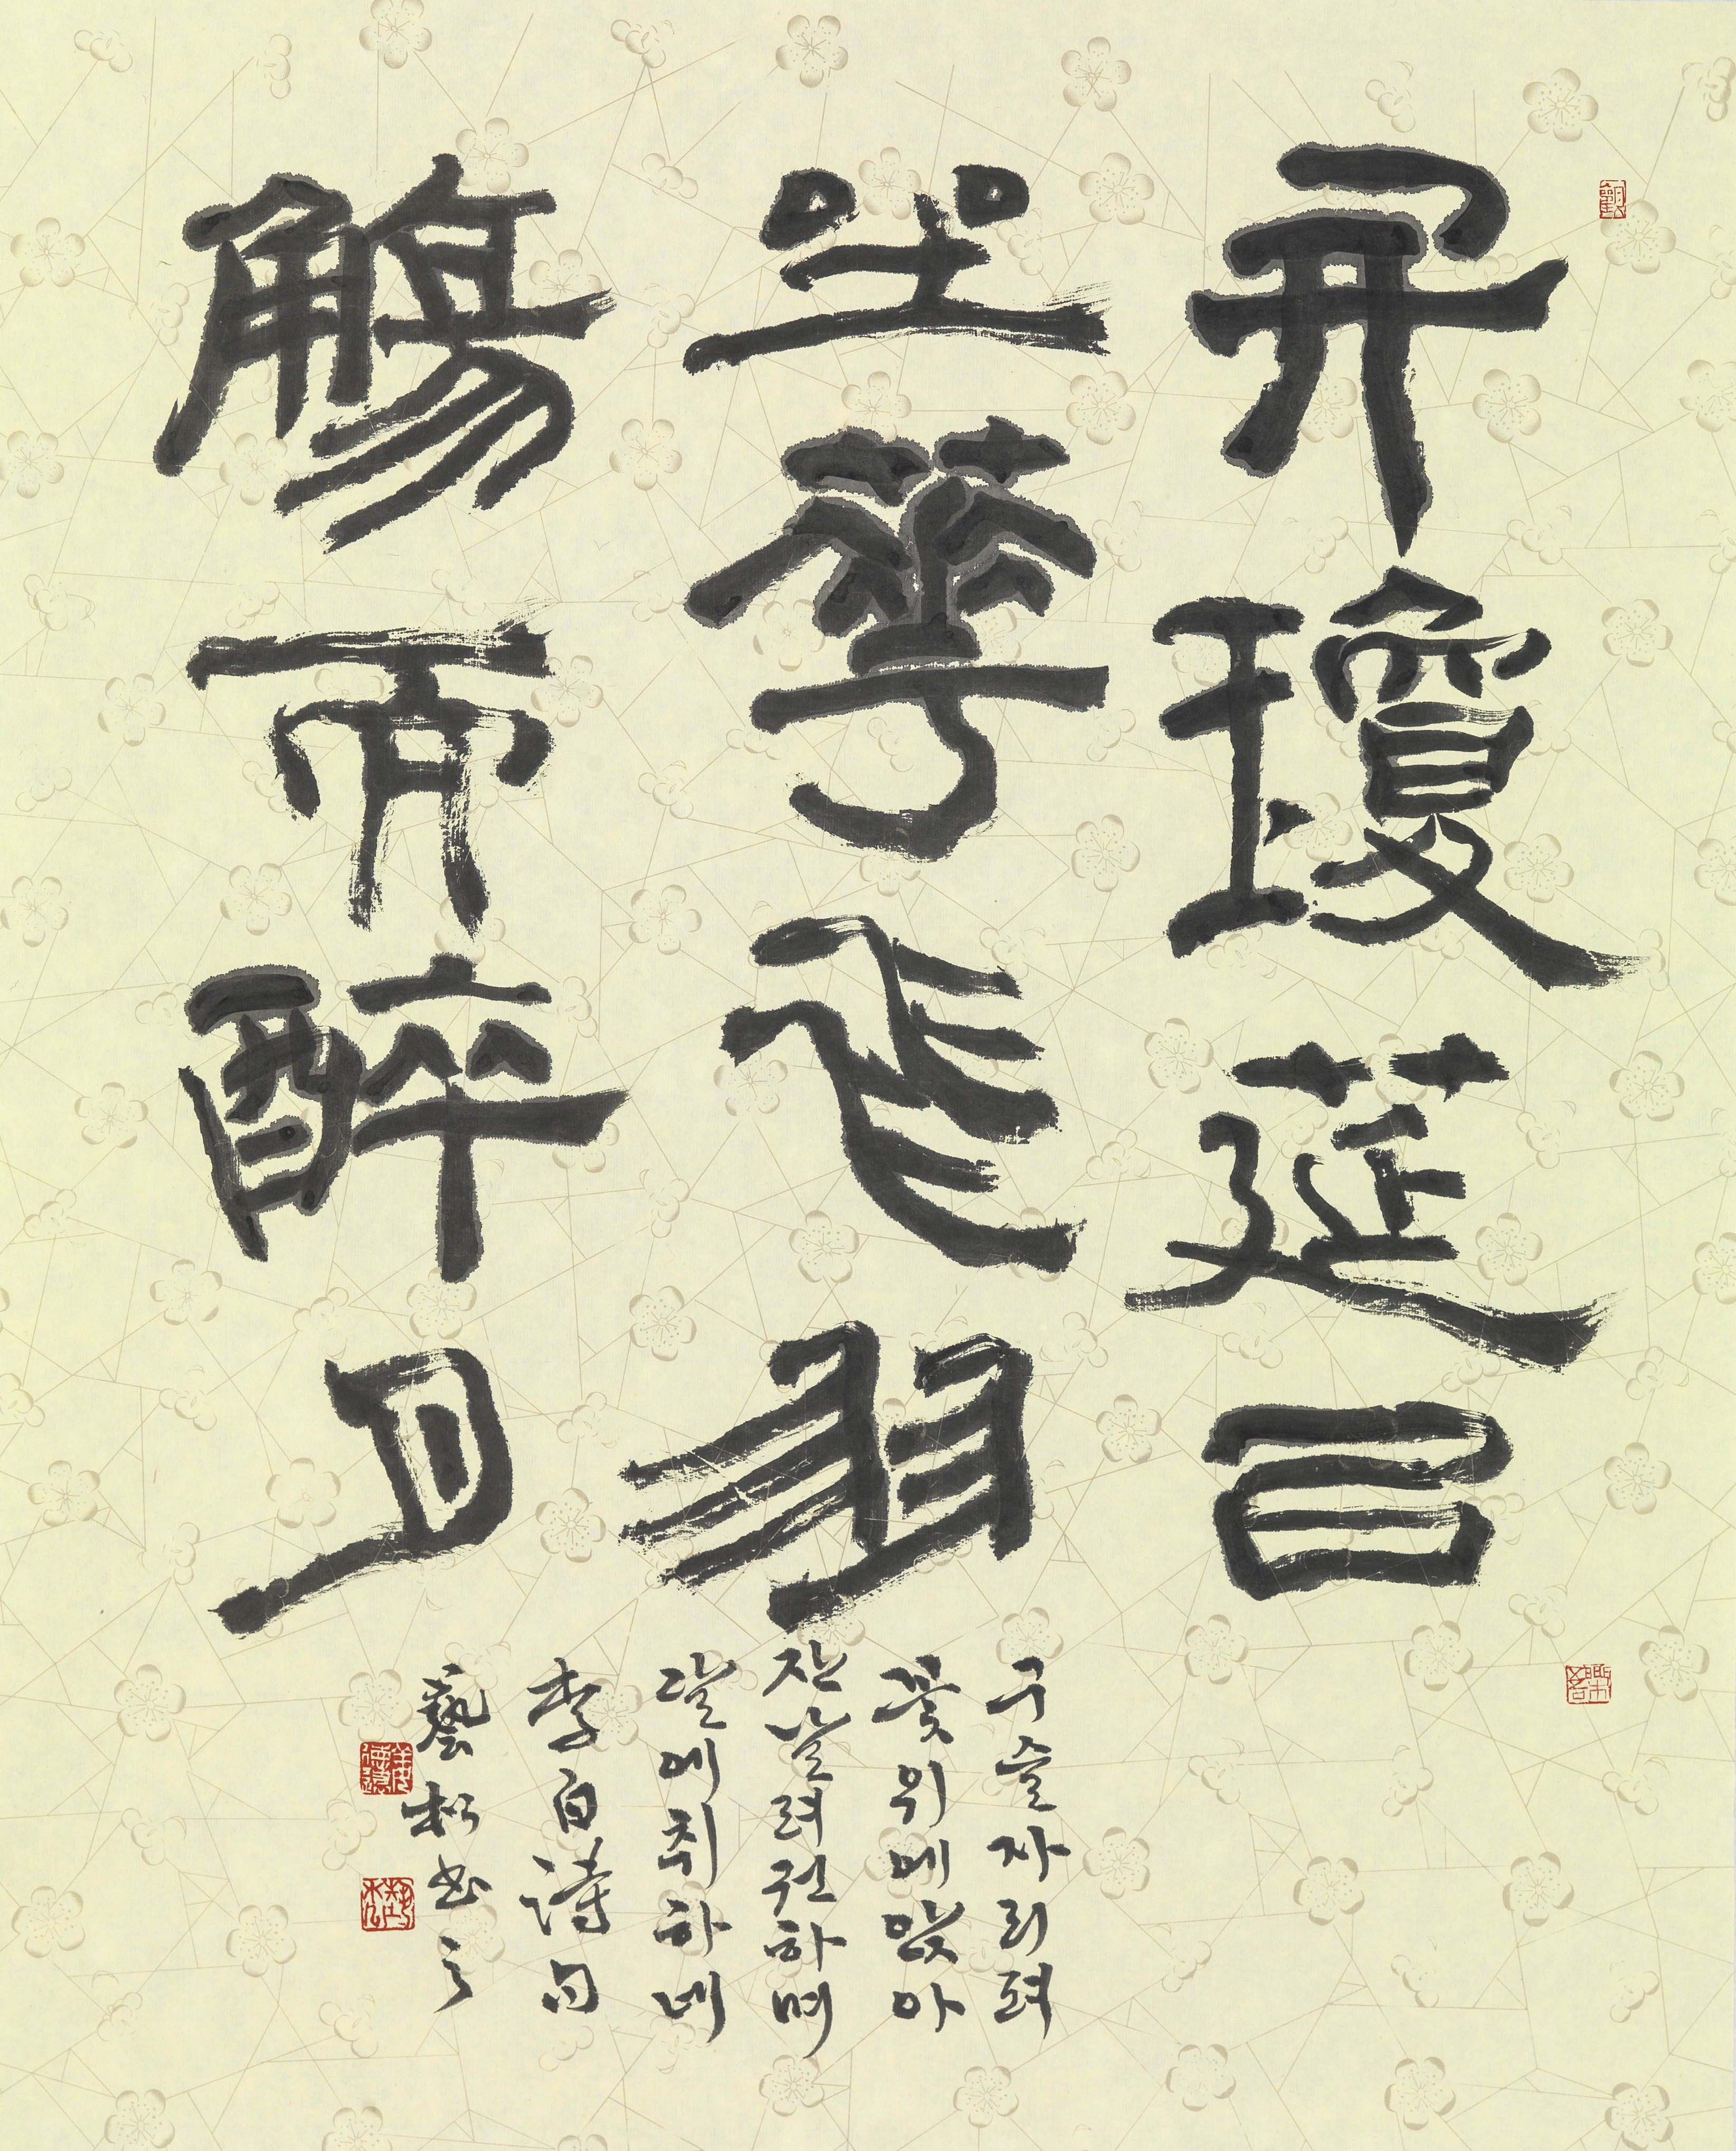 开瓊莚㠯
坐華飛羽
觴而醉月
구슬자리펴
꽃위에앉아
잔날려권하며
달에취하네
李白詩句
藝松書之